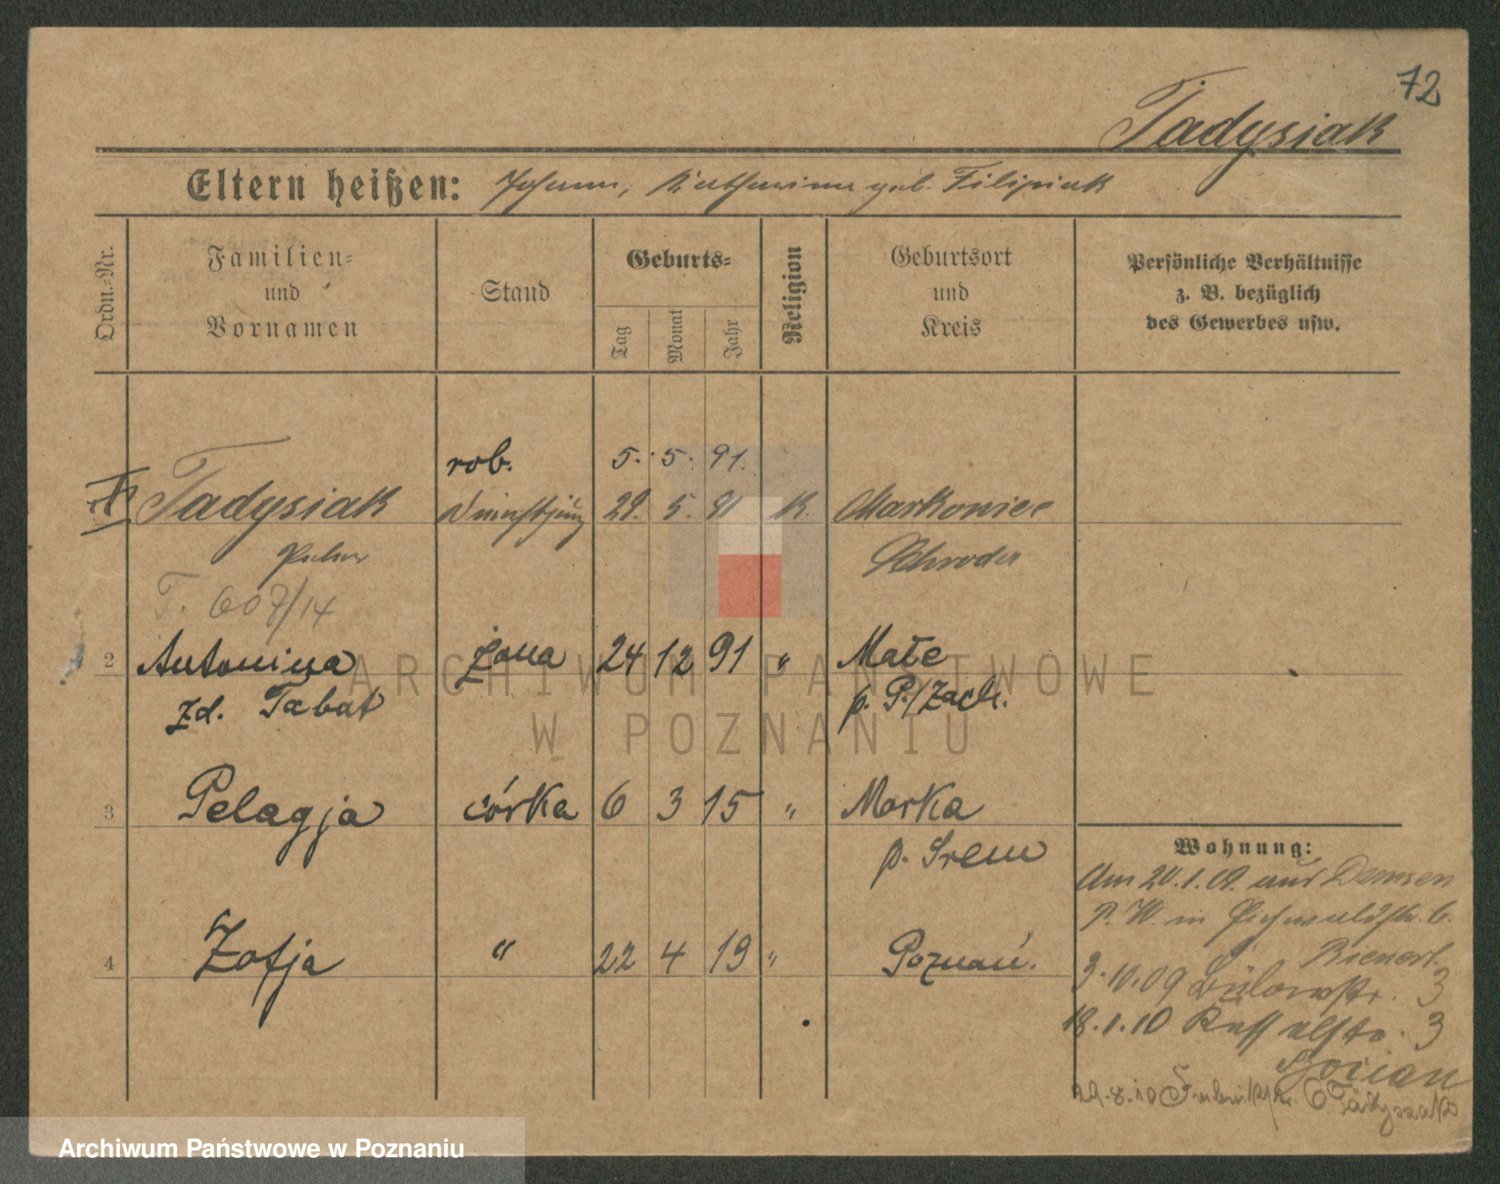 72
Tadysiak
Eltern heißen: Johann, Katharina geb. Filipiak
Ordn.-Nr.
Familien-
und
Vornamen
Stand
Geburts-
Tag
Monat
Jahr
Religion
Geburtsort
und
Kreis
Persönliche Verhältnisse
z. B. bezüglich
des Gewerbes usw.
rob. 5. 5. 91.
Tadysiak 29. 5. 91 K. Markowice
Schroda
T. 607/14
2 Antonina żona 24 12 91 " Małe
zd. Tabat p. P./Zach.
3 Pelagja córka 6 3 15 " Morka
p. Śrem
4 Zofja " 22 4 19 " Poznań.
Wohnung:
Am 20.1.09. aus Demsen
P. W. in 6.
Bienert
3.10.09 Bülowstr. 3
18.1.10 3
29.8.10 6
ARCHIWUM PAŃSTWOWE
W POZNANIU
Archiwum Państwowe w Poznaniu